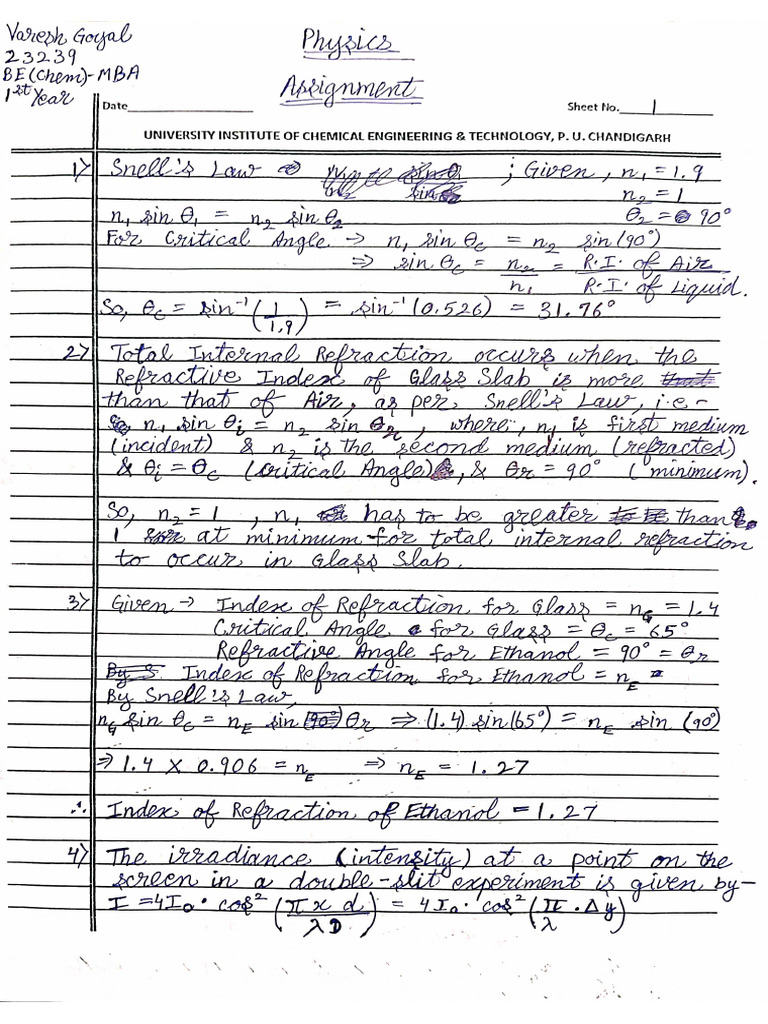 Varesh Goyal
23239
BE(Chem)-MBA
1st Year
Physics
Assignment
Date
Sheet No. 1
UNIVERSITY INSTITUTE OF CHEMICAL ENGINEERING & TECHNOLOGY, P. U. CHANDIGARH
1) Snell's Law ⇒ ; Given, n₁ = 1.9
n₂ = 1
n₁ sin θ₁ = n₂ sin θ₂ θ₂ = 90°
For Critical Angle → n₁ sin θc = n₂ sin(90°)
⇒ sin θc = n₂/n₁ = R.I. of Air/R.I. of Liquid.
So, θc = sin⁻¹(1/1.9) = sin⁻¹(0.526) = 31.76°
2) Total Internal Refraction occurs when the
Refractive Index of Glass Slab is more
than that of Air, as per Snell's Law, i.e-
n₁ sin θi = n₂ sin θr, where, n₁ is first medium
(incident) & n₂ is the second medium (refracted)
& θi = θc (critical Angle), & θr = 90° (minimum).
So, n₂ = 1, n₁ has to be greater than
1 at minimum for total internal refraction
to occur in Glass Slab.
3) Given → Index of Refraction for Glass = nG = 1.4
Critical Angle for Glass = θc = 65°
Refractive Angle for Ethanol = 90° = θr
Index of Refraction for Ethanol = nE =
By Snell's Law,
nG sin θc = nE sin θr ⇒ (1.4) sin(65°) = nE sin (90°)
⇒ 1.4 x 0.906 = nE ⇒ nE = 1.27
∴ Index of Refraction of Ethanol = 1.27
4) The irradiance (intensity) at a point on the
screen in a double-slit experiment is given by-
I = 4I₀ · cos²(π x d/λD) = 4I₀ · cos²(π/λ · Δy)